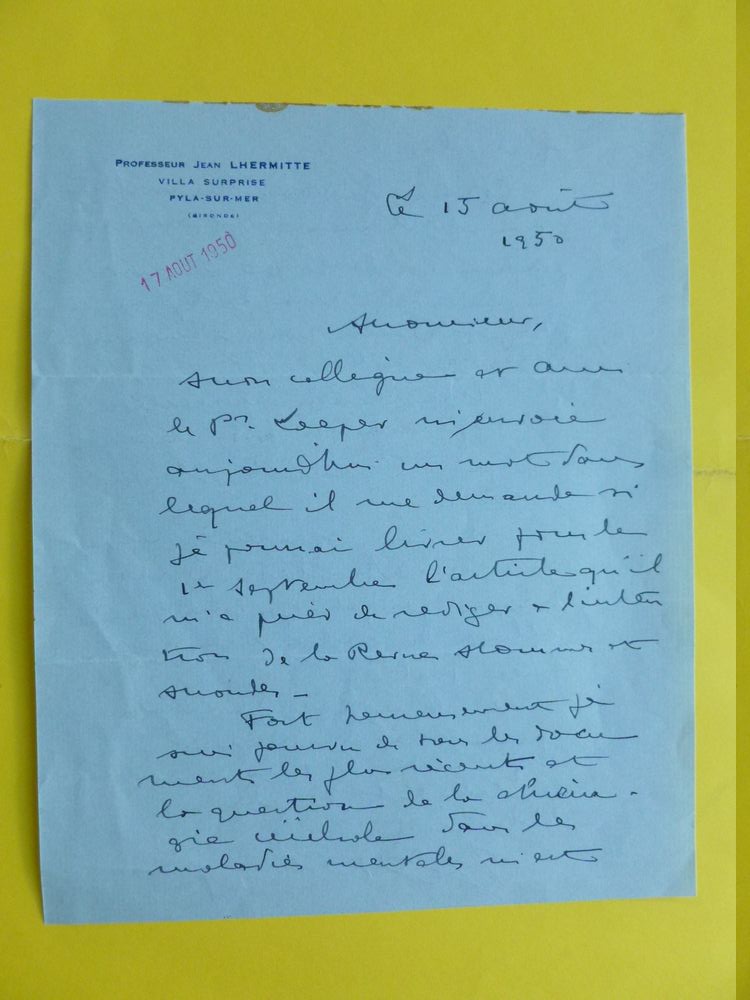 PROFESSEUR JEAN LHERMITTE
VILLA SURPRISE
PYLA-SUR-MER
(GIRONDE)
17 AOUT 1950
Le 15 août
1950
Monsieur,
Mon collègue et ami
le Pr. Loeper m'envoie
aujourd'hui un mot dans
lequel il me demande si
je pourrai livrer pour le
1er septembre l'article qu'il
m'a prié de rediger à l'inten
tion de la Revue Hommes et
Mondes —
Fort heureusement je
suis pourvu de tous les docu
ments les plus récents et
la question de la chirur-
gie cérébrale dans les
maladies mentales m'est